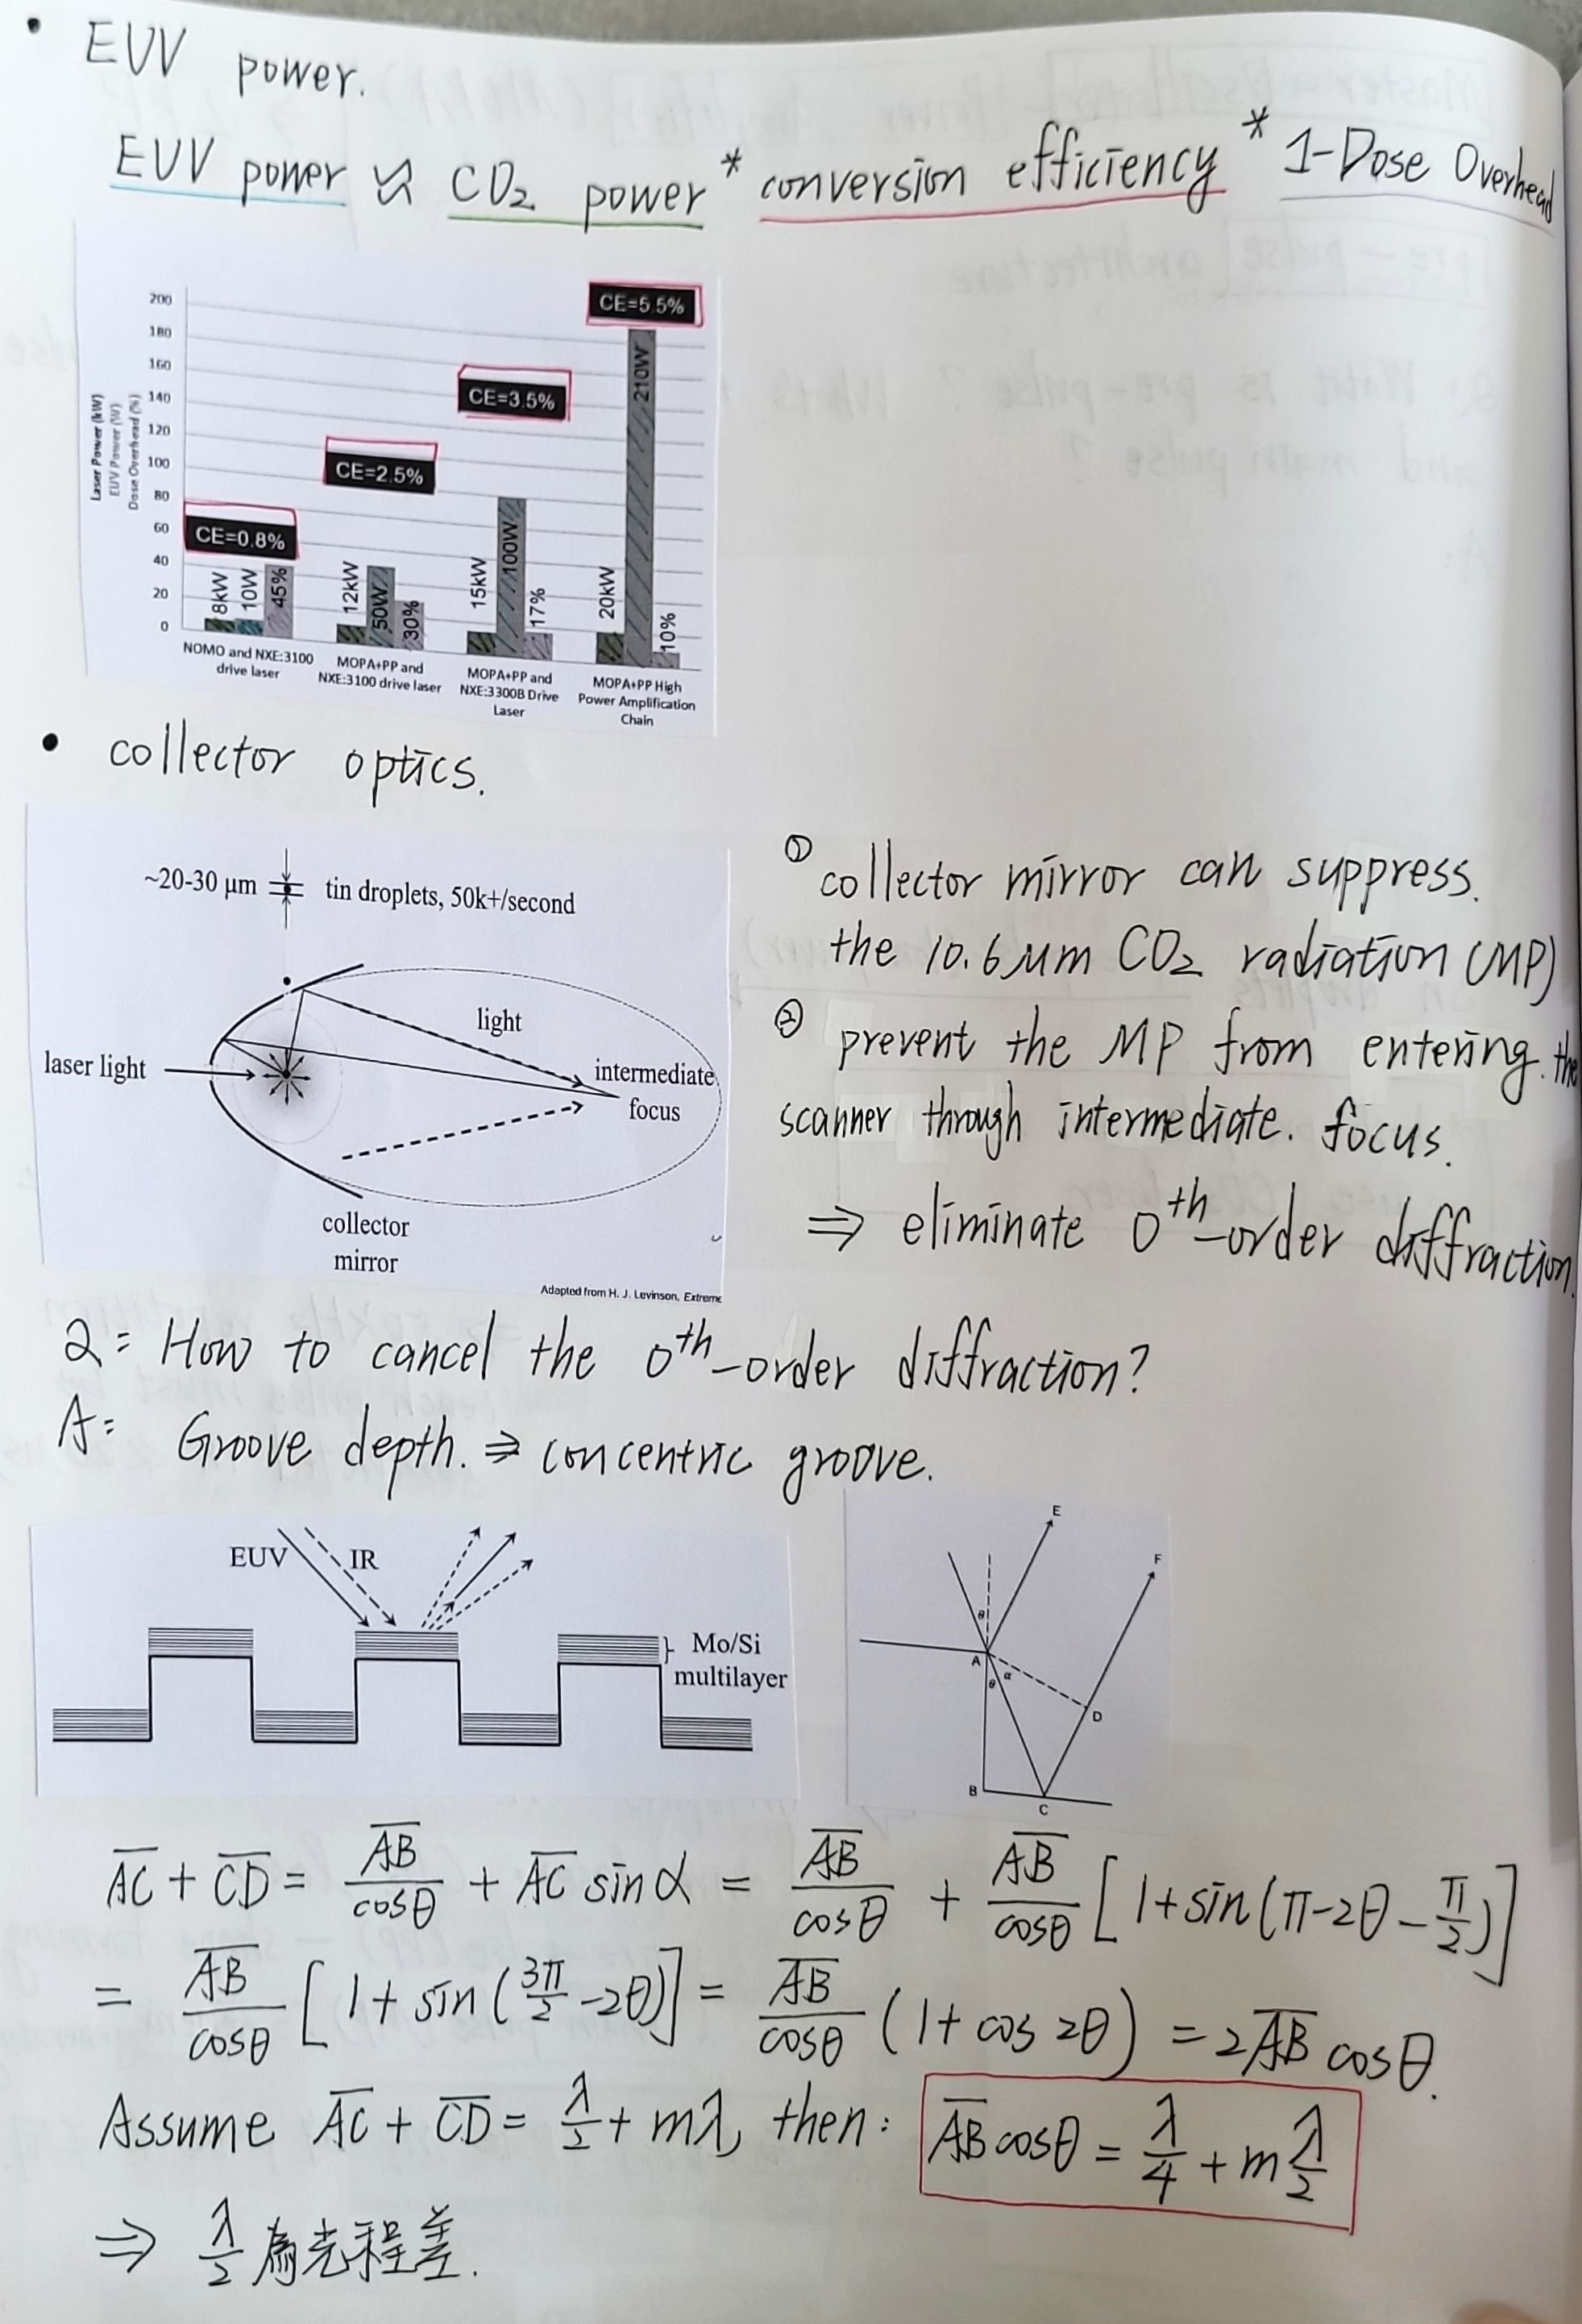 • EUV power.
EUV power ≈ CO₂ power * conversion efficiency * 1-Dose Overhead
Laser Power (kW)
EUV Power (W)
Dose Overhead (%)
200
180
160
140
120
100
80
60
40
20
0
CE=0.8%
CE=2.5%
CE=3.5%
CE=5.5%
8kW 10W 45%
12kW 50W 30%
15kW 100W 17%
20kW 210W 10%
NOMO and NXE:3100
drive laser
MOPA+PP and
NXE:3100 drive laser
MOPA+PP and
NXE:3300B Drive
Laser
MOPA+PP High
Power Amplification
Chain
• collector optics.
~20-30 µm tin droplets, 50k+/second
light
laser light
intermediate
focus
collector
mirror
Adapted from H. J. Levinson, Extreme
① collector mirror can suppress.
the 10.6 µm CO₂ radiation (MP)
② prevent the MP from entering. the
scanner through intermediate. focus.
⇒ eliminate 0th-order diffraction.
Q: How to cancel the 0th-order diffraction?
A: Groove depth. ⇒ concentric groove.
EUV IR
Mo/Si
multilayer
E
F
θ
A
α
θ
D
B
C
AC + CD = AB/cosθ + AC sinα = AB/cosθ + AB/cosθ [1+sin(π-2θ-π/2)]
= AB/cosθ [1+ sin(3π/2 -2θ)] = AB/cosθ (1+ cos 2θ) = 2AB cosθ.
Assume AC + CD = λ/2 + mλ, then: AB cosθ = λ/4 + m λ/2
⇒ λ/2 為光程差.